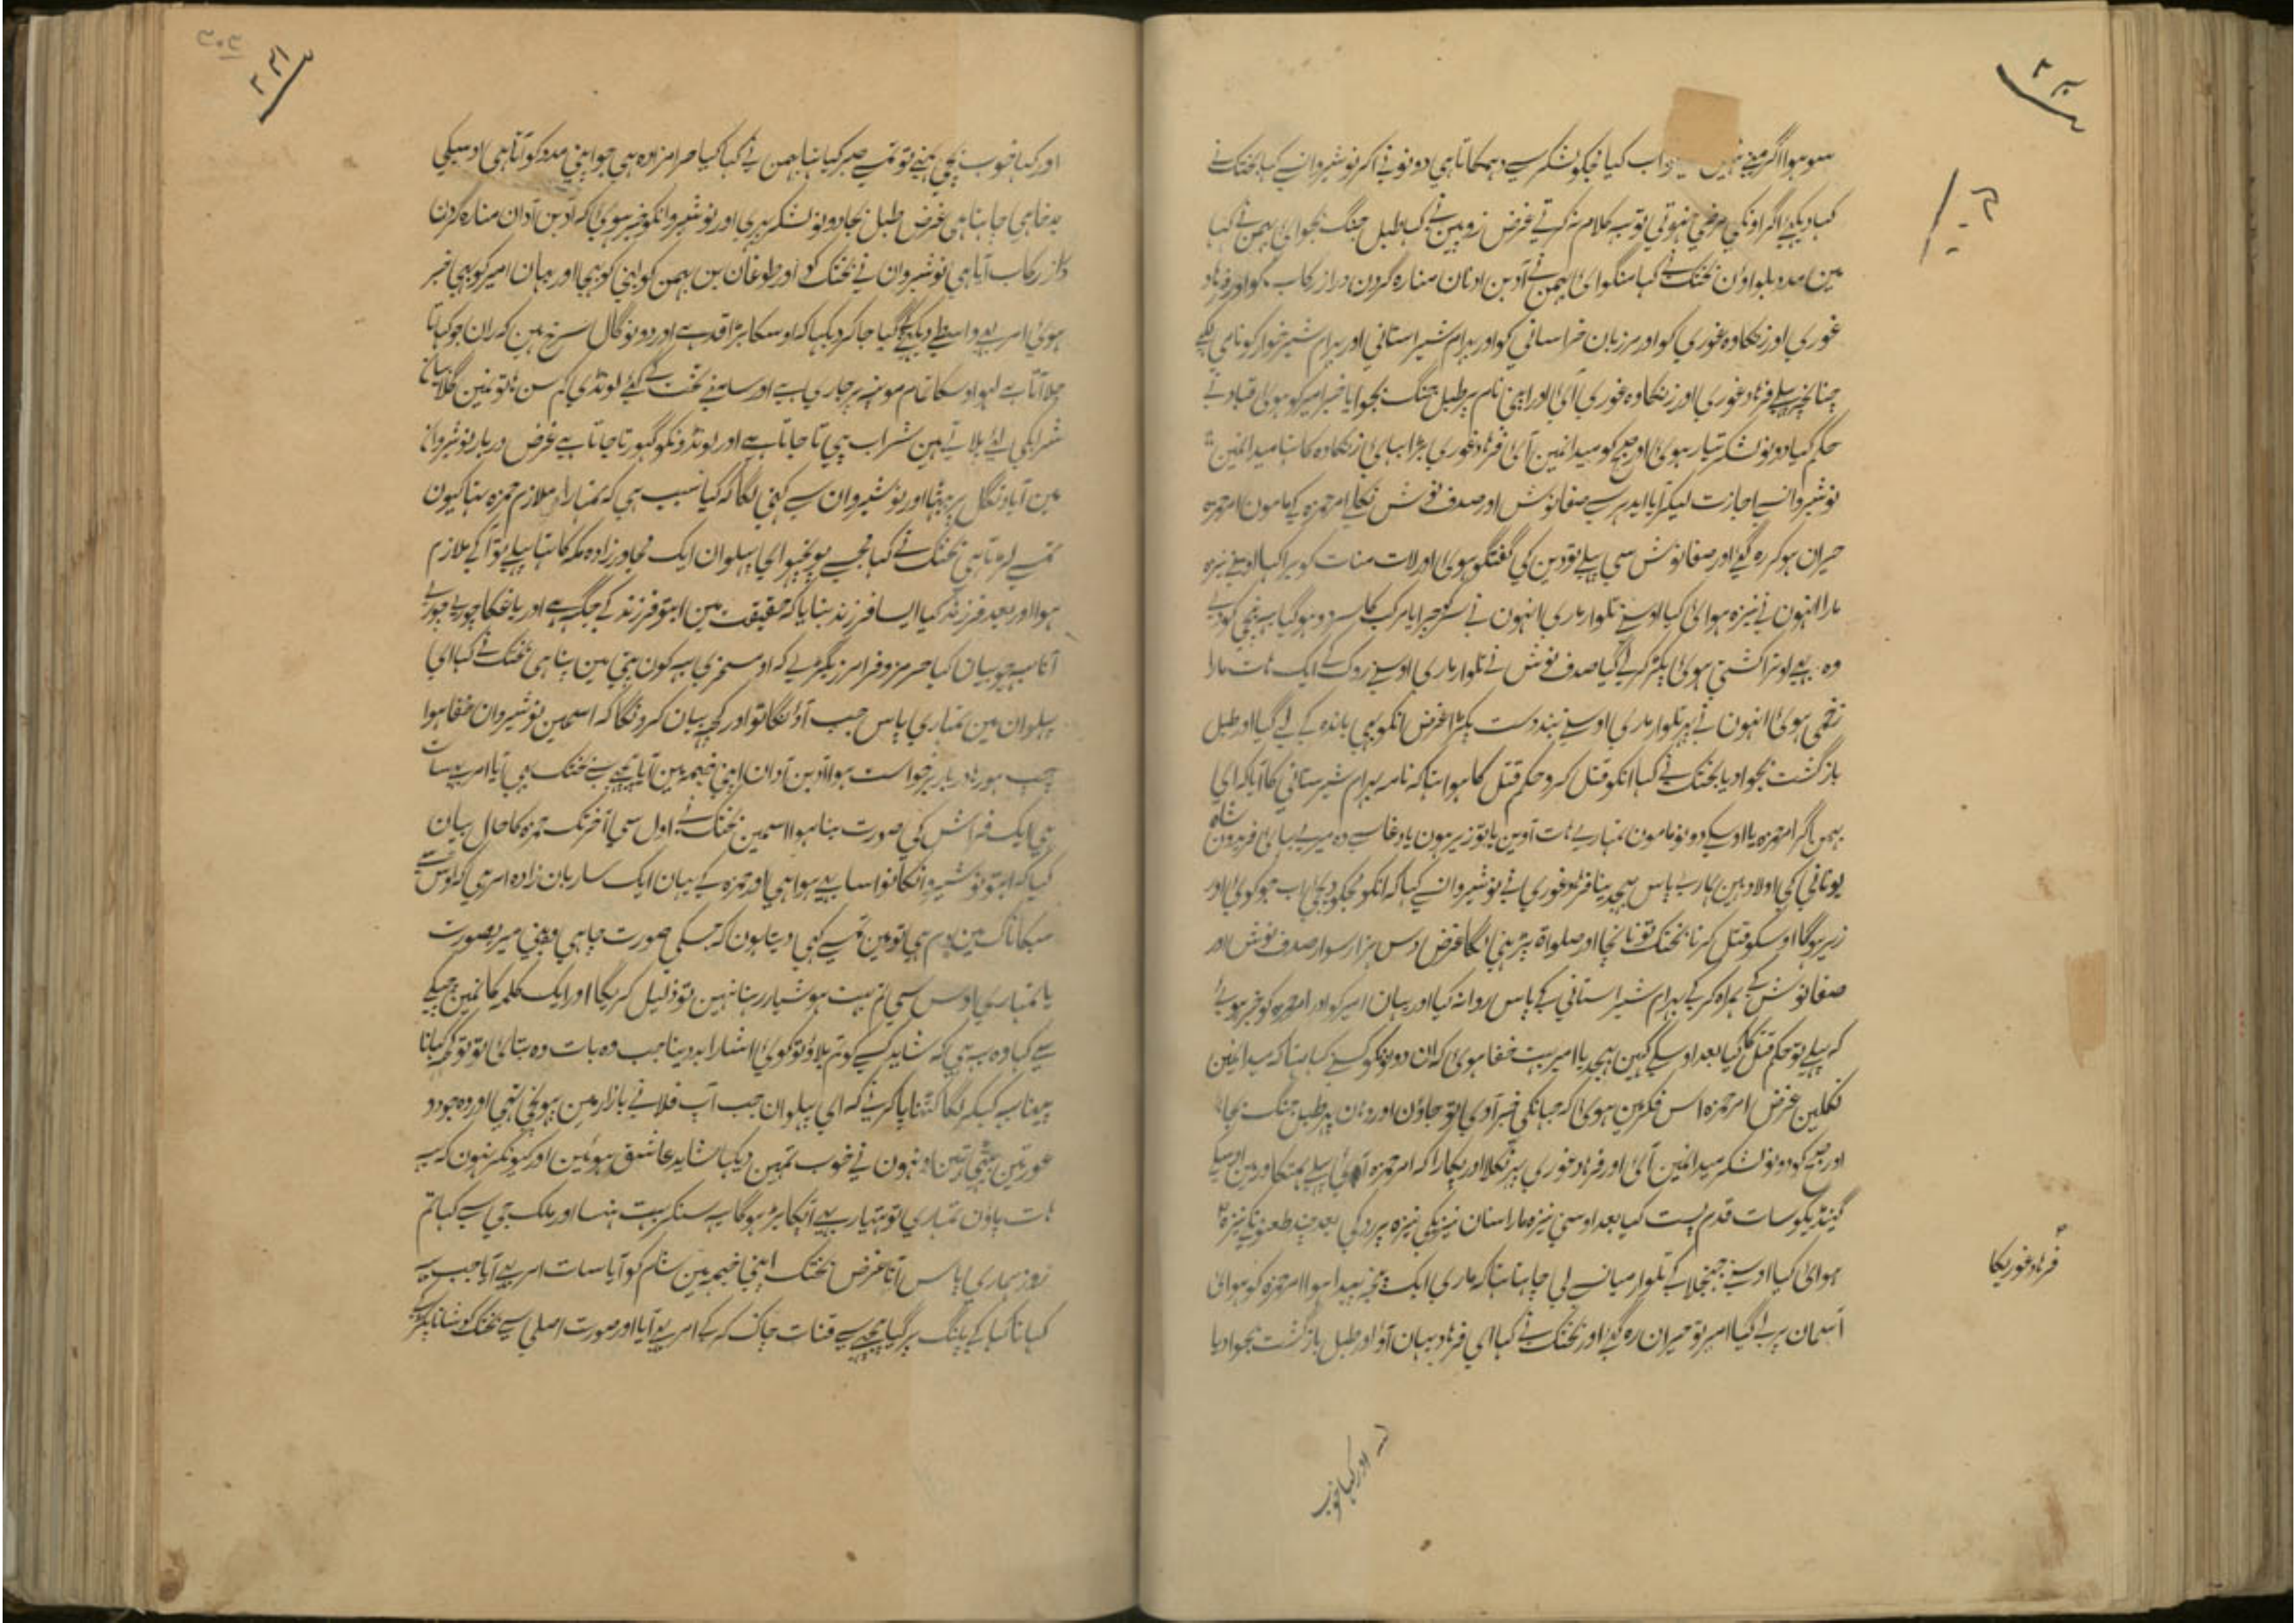 سو ہوا اگر مینے نہیں اب کیا مجکو لشکر سے دہمکاتا ہی دونو نے اکر نوشیروانسے کہا بختک نے
کہا دیکہئے اگر اونکی مرضی نہوتی تو یہ کلام نہ کرتے غرض زوبین نے کہا طبل جنگ بجوائی بہمن نے کہا
مین مدد بلواون بختک نے کہا منگوائی بہمن نے آدبن ادان منارہ گردن دراز رکاب کو اور فرہاد
غوری اور زنکاوہ غوری کو اور مرزبان خراسانی کو اور بہرام شیراستانی اور بہرام شیر خوار کو نامی لکہے
چنانچہ پہلے فرہاد غوری اور زنکاوہ غوری آئی اور اپنی نام پر طبل جنگ بجوایا خبر امیر کو ہوئی قباد نے
حکم کیا دونو لشکر تیار ہوئی اور صبح کو میدانمین آئی فرہاد غوری بڑا بہائی زنکاوہ کا تہا میدانمین
نوشیروانسے اجازت لیکر آیا ایدہر سے صفانوش اور صدف نوش نکلے امر حمزہ کے مامون امر حمزہ
حیران ہوکر رہ گئے اور صفانوش سی پہلے تو دین کی گفتگو ہوئی اور لات منات کو برا کہا اوسنے نیزہ
مارا انہون نے نیزہ ہوائی کیا اوسنے تلوار ماری انہون نے سر کو چرایا مرکب کا سر دو ہو گیا یہ نیچی کودے
وہ بہے اوترا کشتی ہوئی پکڑ کر لے گیا صدف نوش نے تلوار ماری اوسنے روک کے ایک ہات مارا
زخمی ہوئی انہون نے پہر تلوار ماری اوسنے بند دست پکڑا غرض انکو بہی باندہ کے لے گیا اور طبل
بازگشت بجوا دیا بختک نے کہا انکو قتل کرو حکم قتل کا ہوا تہا کہ نامہ بہرام شیرستانی کا آیا کہ ای
بہمن اگر امر حمزہ یا اوسکے دونو مامون تمہارے ہات آوین یا تو زیر ہون یا دغا سے وہ میرے بہائی فریدون شاہ
یونانی کی اولاد ہین ہمارے پاس بہیجدینا فرہاد غوری نے نوشیروانسے کہا کہ انکو مجکو دیجئی اب جو کوئی اور
زیر ہوگا اوسکو قتل کرنا بختک تو ناچا اور صلواۃ پڑہنی لگا غرض دس ہزار سوار صدف نوش اور
صفانوش کے ہمراہ کرکے بہرام شیراستانی کے پاس روانہ کیا اور یہان امیر کو اور امر حمزہ کو خبر ہوئے
کہ پہلے تو حکم قتل کا کیا بعد اوسکے کہین بہیجدیا امیر بہت خفا ہوئی کہ ان دونونکو کسنے کہا تہا کہ میدانمین
نکلین غرض امر حمزہ اس فکر مین ہوئی کہ جہانکی خبر آوی یا تو جاون اور وہان پہر طبل جنگ بجا
اور صبح کو دونو لشکر میدانمین آئی اور فرہاد غوری پہر نکلا اور پکارا کہ امر حمزہ آئی
گینڈیکو سات قدم پست کیا بعد اوسنی نیزہ مارا سنان نیزیکی نیزہ پر رد کی بعد چند طعنونکے نیزہ
ہوائی کیا اوسنے جہنجلا کے تلوار میانسے لی چاہتا تہا کہ ماری ایک پنجہ پیدا ہوا امر حمزہ کو ہوائی
آسمان پر لے گیا امیر تو حیران رہ گئے اور بختک نے کہا ای فرہاد یہان آؤ اور طبل بازگشت بجوا دیا
فرہاد غوریکا
اور کہا خوب
اور کہا خوب بچی مینے تو تمسے صبر کیا تہا بہمن نے کہا کیا حرامزادہ ہی جو اپنی مدد کو آتا ہی اوسیکی
بدخاہی چاہتا ہی غرض طبل بجا دونو لشکر پہری اور نوشیروانکو خبر ہوئی کہ آدبن آدان منارہ گردن
دراز رکاب آیا ہی نوشیروان نے بختک کو اور طوغان بن بہمن کو لینی کو بہیجا اور یہان امیر کو بہی خبر
ہوئی امر بہے واسطے دیکہنے گیا جا کر دیکہا کہ اوسکا بڑا قد ہے اور دونو گال سرخ ہین کہ ران جو کہاتا
چلا آتا ہے لہو اوسکا تمام مونہہ پر جاری ہے اور سامنے تخت کے کئے لونڈی کم سن ہاتونمین گلابیان
شرابکی لئے پلاتے ہین شراب پیتا جاتا ہے اور لونڈونکو گہورتا جاتا ہے غرض دربار نوشیروان
مین آیا دنگل پر بیٹہا اور نوشیروان سے کہنی لگا کہ کیا سبب ہی کہ تمہارا داماد ملازم حمزہ تہا کیون
تمسے لڑتا ہی بختک نے کہا مجہسے پوچہو ای پہلوان ایک مجاور زادہ مکہ کا تہا پہلے تو آ کے ملازم
ہوا اور بعد فرزند کیا ایسا فرزند بنایا کہ حقیقت مین ابتو فرزند کے جگہ ہے اور باغکا چوربے چوربے
آنا یہ جو بیان کیا ہرمز و فرامرز بگڑے کہ او سخری یہ کون بیچ مین تہا ہی بختک نے کہا ای
پہلوان مین تمہاری پاس جب آونگا تو اور کچہہ بیان کرونگا کہ اسمین نوشیروان خفا ہوا
چپ ہو رہا دربار برخواست ہوا آدبن آدان اپنی خیمہ مین آیا پیچہے سے بختک بہی آیا امر بہے سات
ہی ایک فراش کی صورت بنا ہوا اسمین بختک نے اول سی آخر تک حمزہ کا حال بیان
کیا کہ ابتو نوشیروانکا نواسا بہے ہوا ہی اور حمزہ کے یہان ایک ساربان زادہ امر ہی کہ اوس سے
سبکا ناک مین دم ہی تو مین تمسے کہی دیتا ہون کہ جسکی صورت چاہی وہ بنی میر بصورت
یا تمہاری اوس سی تم بہت ہوشیار رہنا نہین تو ذلیل کریگا اور ایک کلمہ کانمین چپکے
سے کہا وہ یہ ہی کہ شاید کسے کو تم بلاؤ تو کوئی اشارا بد دینا جب وہ بات وہ بتائی تو تو کچہہ کہانا
پینا یہ کہکے لگا کہتنا پا کرنے کہ ای پہلوان جب آپ فلانے بازار مین پہونچی تہی اور وہ جو دو
عورتین بیٹہی تہین اونہون نے خوب تمہین دیکہا شاید عاشق ہوئین اور کیونکر نہون کہ یہ
ہات پاؤن تمہاری تو ہتیار بہے انکا بڑا ہوگا یہ سنکر بہت ہنسا اور ملک جی سے کہا تم
روز ہماری پاس آنا غرض بختک اپنی خیمہ مین شام کو آیا سات امر بہے آیا جب یہ
کہانا کہا کے پلنگ پر گیا پیچہے سے قنات چاک کرکے امر بہے آیا اور صورت اصلی سے بختک کو شانا پکڑ کے